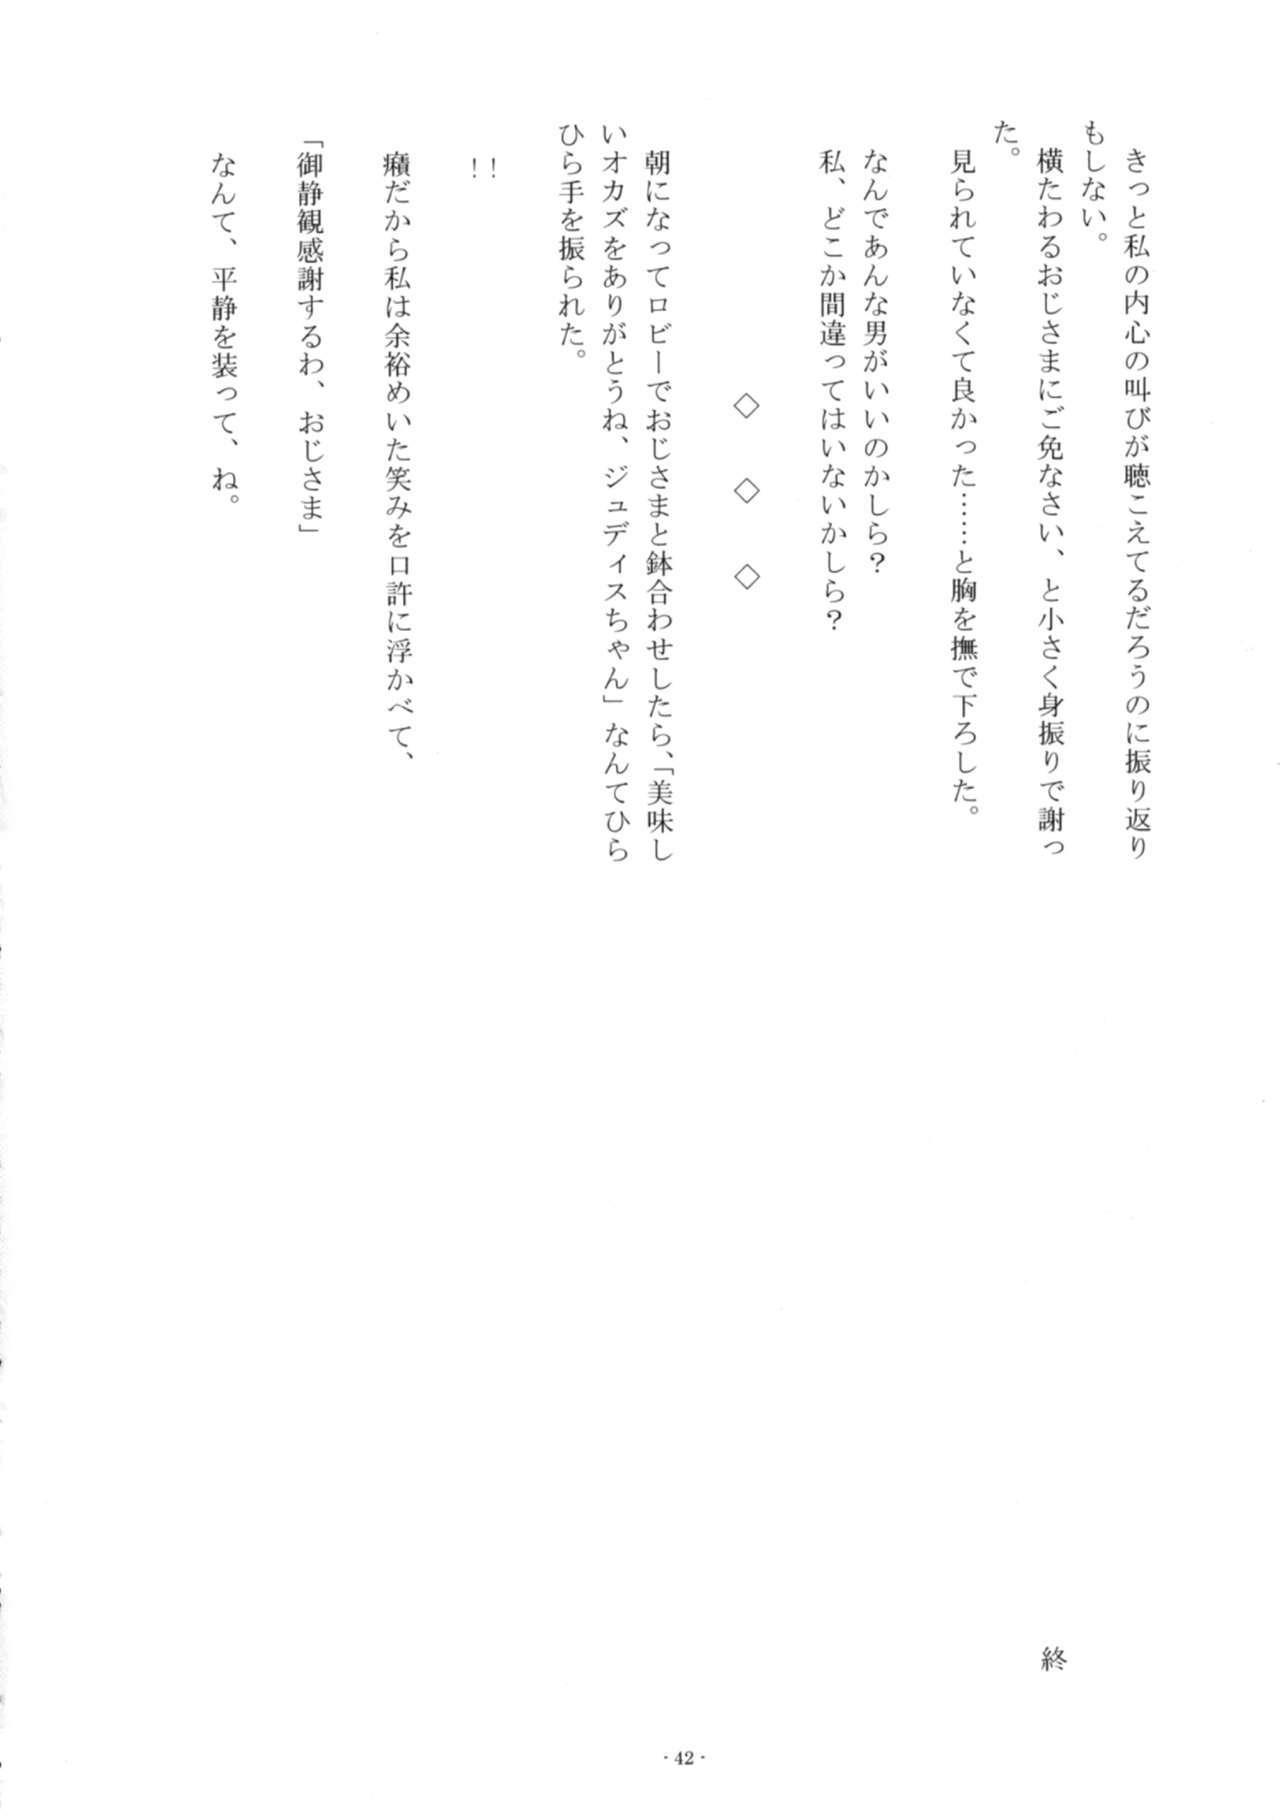 きっと私の内心の叫びが聴こえてるだろうのに振り返り
もしない。
横たわるおじさまにご免なさい、と小さく身振りで謝っ
た。
見られていなくて良かった……と胸を撫で下ろした。
なんであんな男がいいのかしら？
私、どこか間違ってはいないかしら？
◇　◇　◇
朝になってロビーでおじさまと鉢合わせしたら、「美味し
いオカズをありがとうね、ジュディスちゃん」なんてひら
ひら手を振られた。
！！
癪だから私は余裕めいた笑みを口許に浮かべて、
「御静観感謝するわ、おじさま」
なんて、平静を装って、ね。
終
- 42 -